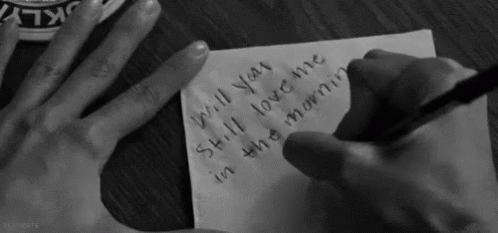 OKLYN
Will you
Still love me
in the mornin